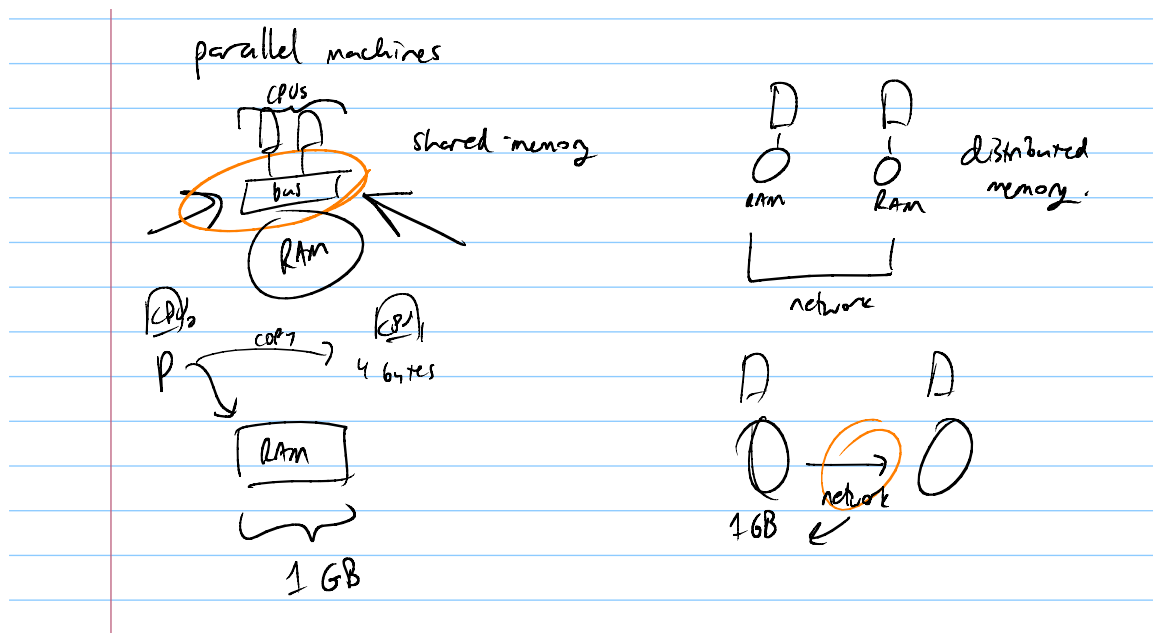 parallel machines
CPUs
shared-memory
bus
RAM
CPU0
copy
CPU1
P
4 bytes
RAM
1 GB
RAM
RAM
distributed
memory.
network
network
1GB